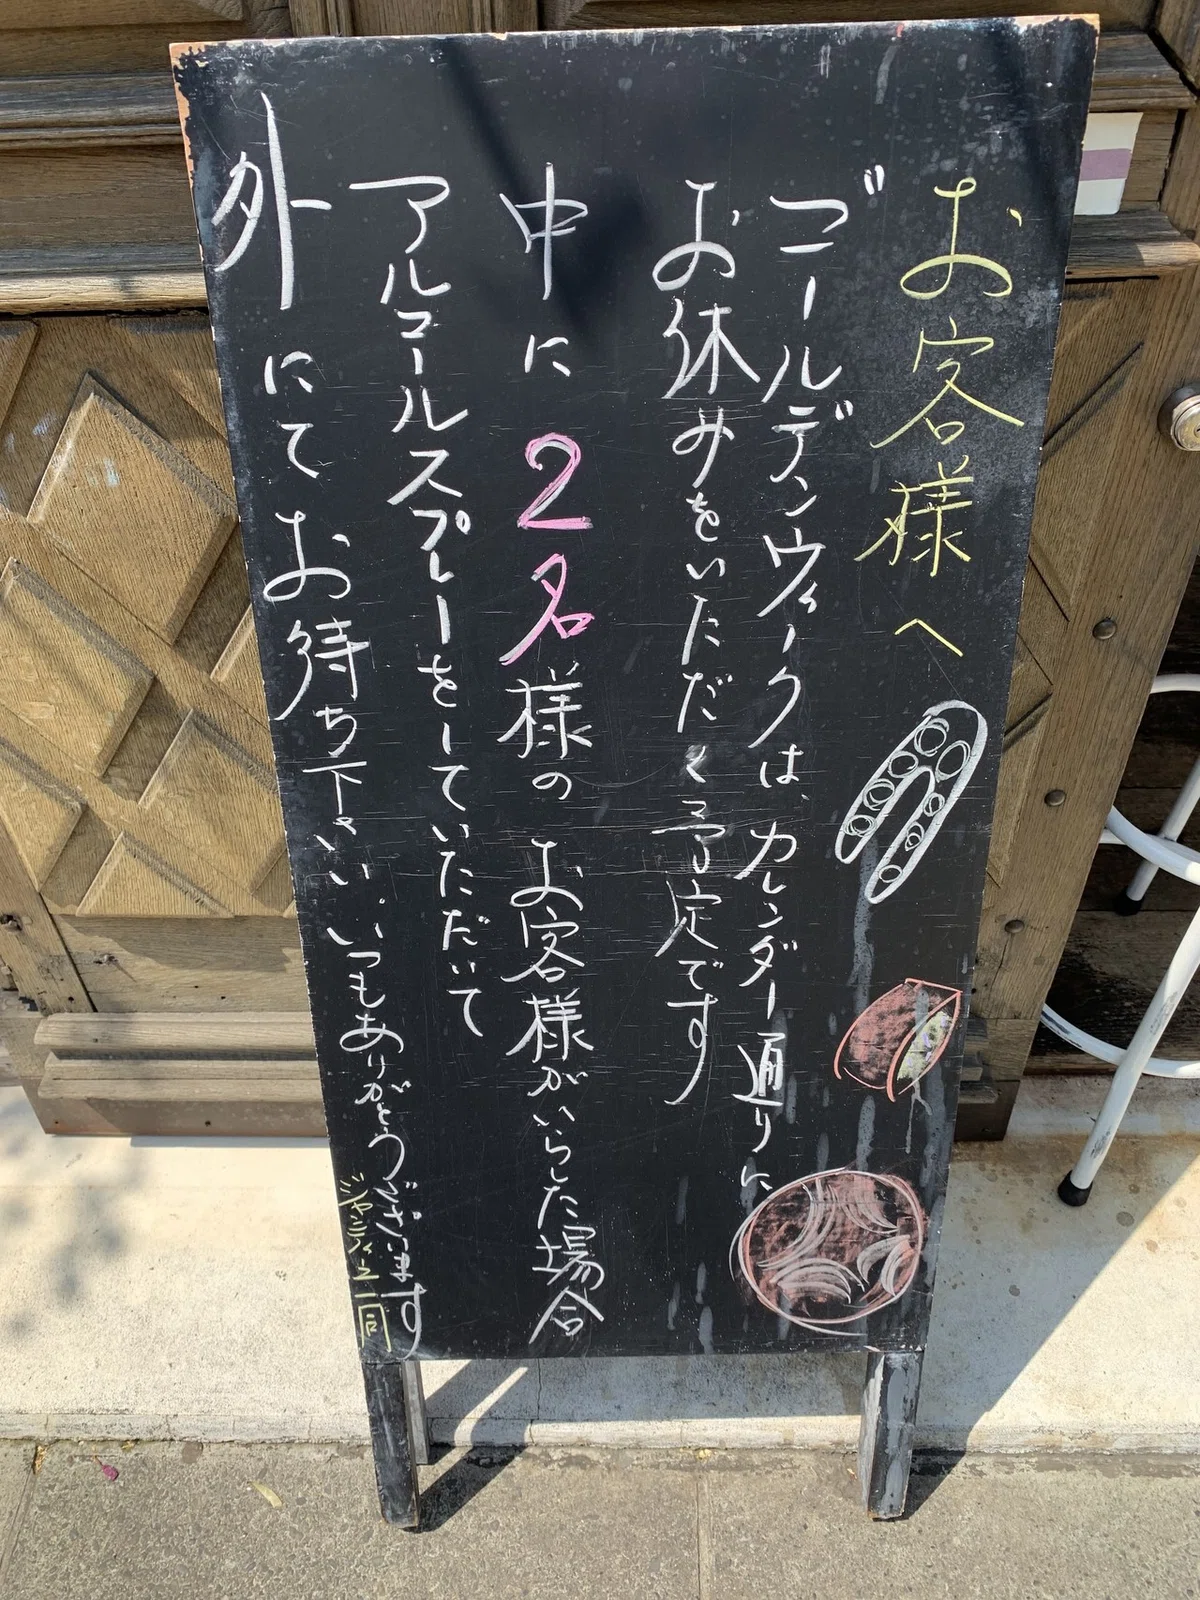 お客様へ
ゴールデンウィークは、カレンダー通りに、
お休みをいただく予定です
中に2名様のお客様がいらした場合
アルコールスプレーをしていただいて
外にてお待ち下さい。いつもありがとうございます